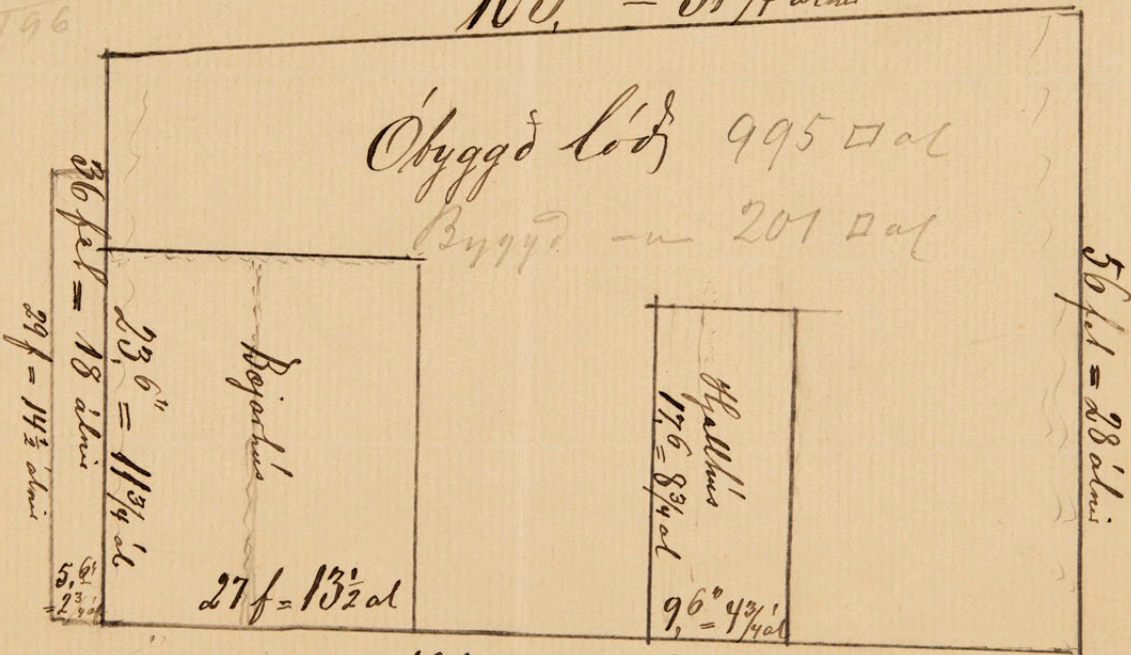 796
Óbyggð lóð 995 □ al
Byggð —〃— 201 □ al
36 fet = 18 álnir
29 f = 14½ álnir
23,6" = 11¾ ál
Bæjarhús
27 f = 13½ al
5,6"
= 2¾ al
Hjallhús
17,6 = 8¾ al
9,6" = 4¾ al
56 fet = 28 álnir